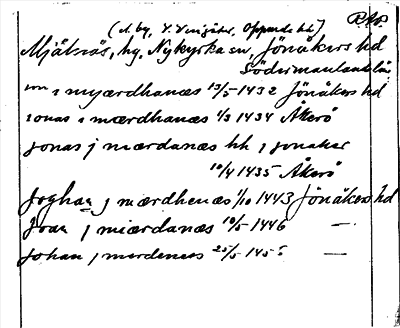 (N. by, V. Vingåker, Oppunda hd) RAP
Mjälnäs, hg, Nykyrka sn, Jönåkers hd
Södermanlands län
ion i myærdhanæs 13/5 1432 Jönåkers hd
ionas i mærdhanæs 4/3 1434 Åkerö
Jonas j mærdanæs hh i jonaker
10/4 1435 Åkerö
Joghan j mærdhenæs 1/10 1443 Jönåkers hd
Joan j miærdanæs 10/5 1446 —
Johan j merdenes 25/5 145 —